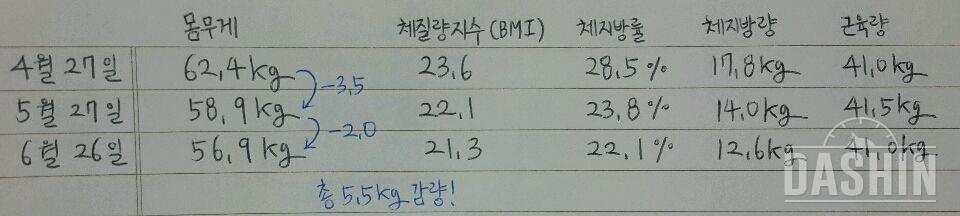 몸무게 체질량지수(BMI) 체지방률 체지방량 근육량
4월 27일 62,4kg 23,6 28,5% 17,8kg 41,0kg
-3,5
5월 27일 58,9kg 22,1 23,8% 14,0kg 41,5kg
-2,0
6월 26일 56,9kg 21,3 22,1% 12,6kg 41,0kg
총 5,5kg 감량!
DASHIN